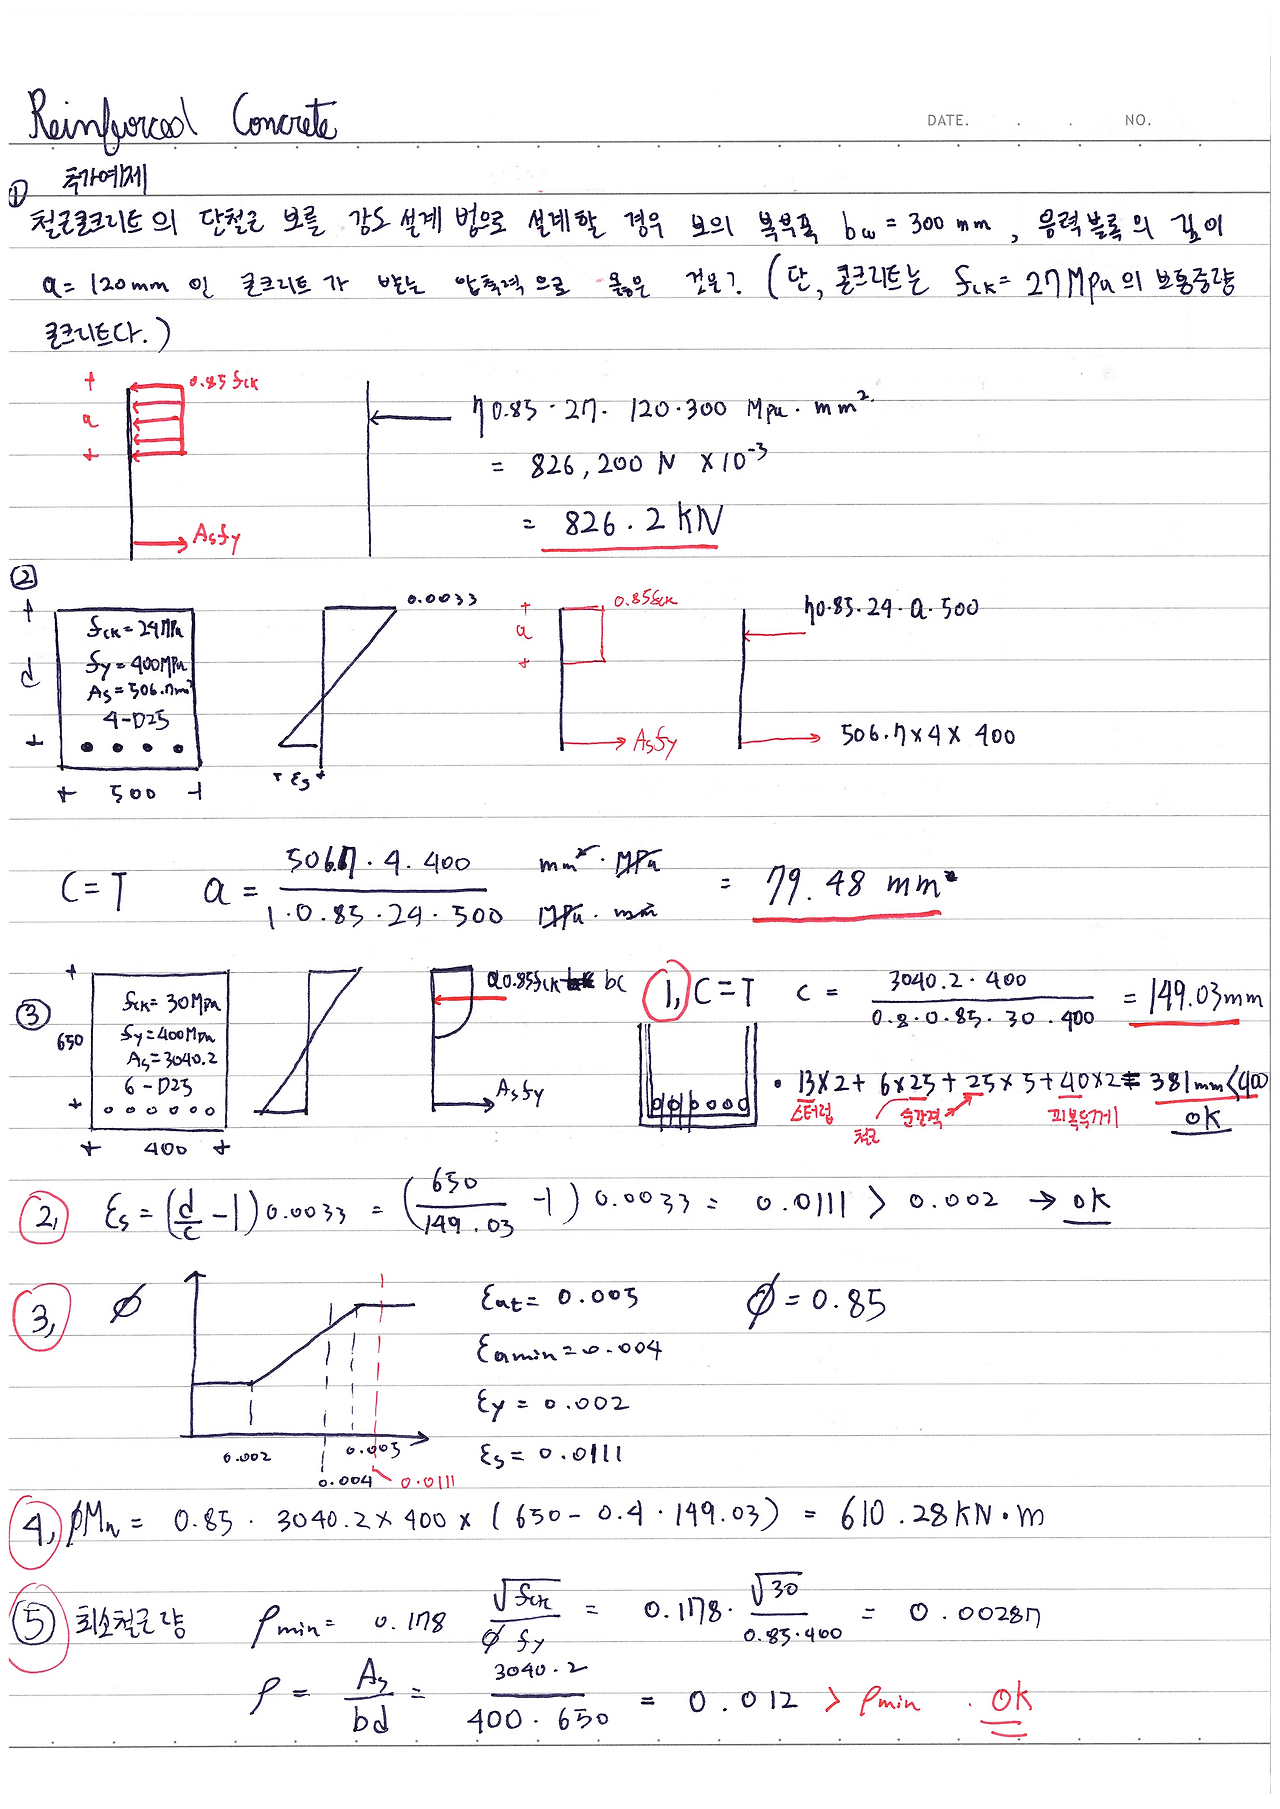 Reinforced Concrete
DATE. . . NO.
① 추가예제
철근콘크리트의 단철근 보를 강도 설계법으로 설계할 경우 보의 복부폭 bw = 300 mm, 응력블록의 깊이
a = 120mm 인 콘크리트가 받는 압축력으로 옳은 것은? (단, 콘크리트는 fck = 27MPa의 보통중량
콘크리트다.)
a
0.85 fck
Asfy
η0.85 · 27 · 120 · 300 Mpa · mm²
= 826,200 N ×10⁻³
= 826.2 kN
②
d
fck = 24MPa
fy = 400MPa
As = 506.7mm²
4-D25
500
0.0033
εs
a
0.85fck
Asfy
η0.85·24·a·500
506.7×4×400
C = T a = 506.7 · 4 · 400 / 1 · 0.85 · 24 · 500 mm² · MPa / MPa · mm = 79.48 mm
③
650
fck = 30Mpa
fy = 400Mpa
As = 3040.2
6-D25
400
α0.85fck bc
Asfy
1, C = T c = 3040.2 · 400 / 0.8 · 0.85 · 30 · 400 = 149.03mm
· 13×2 + 6×25 + 25×5 + 40×2 = 381mm < 400
스터럽 철근 순간격 피복두께 OK
2, εs = (d/c - 1) 0.0033 = (650/149.03 - 1) 0.0033 = 0.0111 > 0.002 → OK
3, ϕ
0.002
0.004
0.005
0.0111
εat = 0.005 ϕ = 0.85
εamin = 0.004
εy = 0.002
εs = 0.0111
4, ϕMn = 0.85 · 3040.2 × 400 × (650 - 0.4 · 149.03) = 610.28 kN·m
⑤ 최소철근량 ρmin = 0.178 √fck / ϕ fy = 0.178 · √30 / 0.85·400 = 0.00287
ρ = As / bd = 3040.2 / 400 · 650 = 0.012 > ρmin . OK